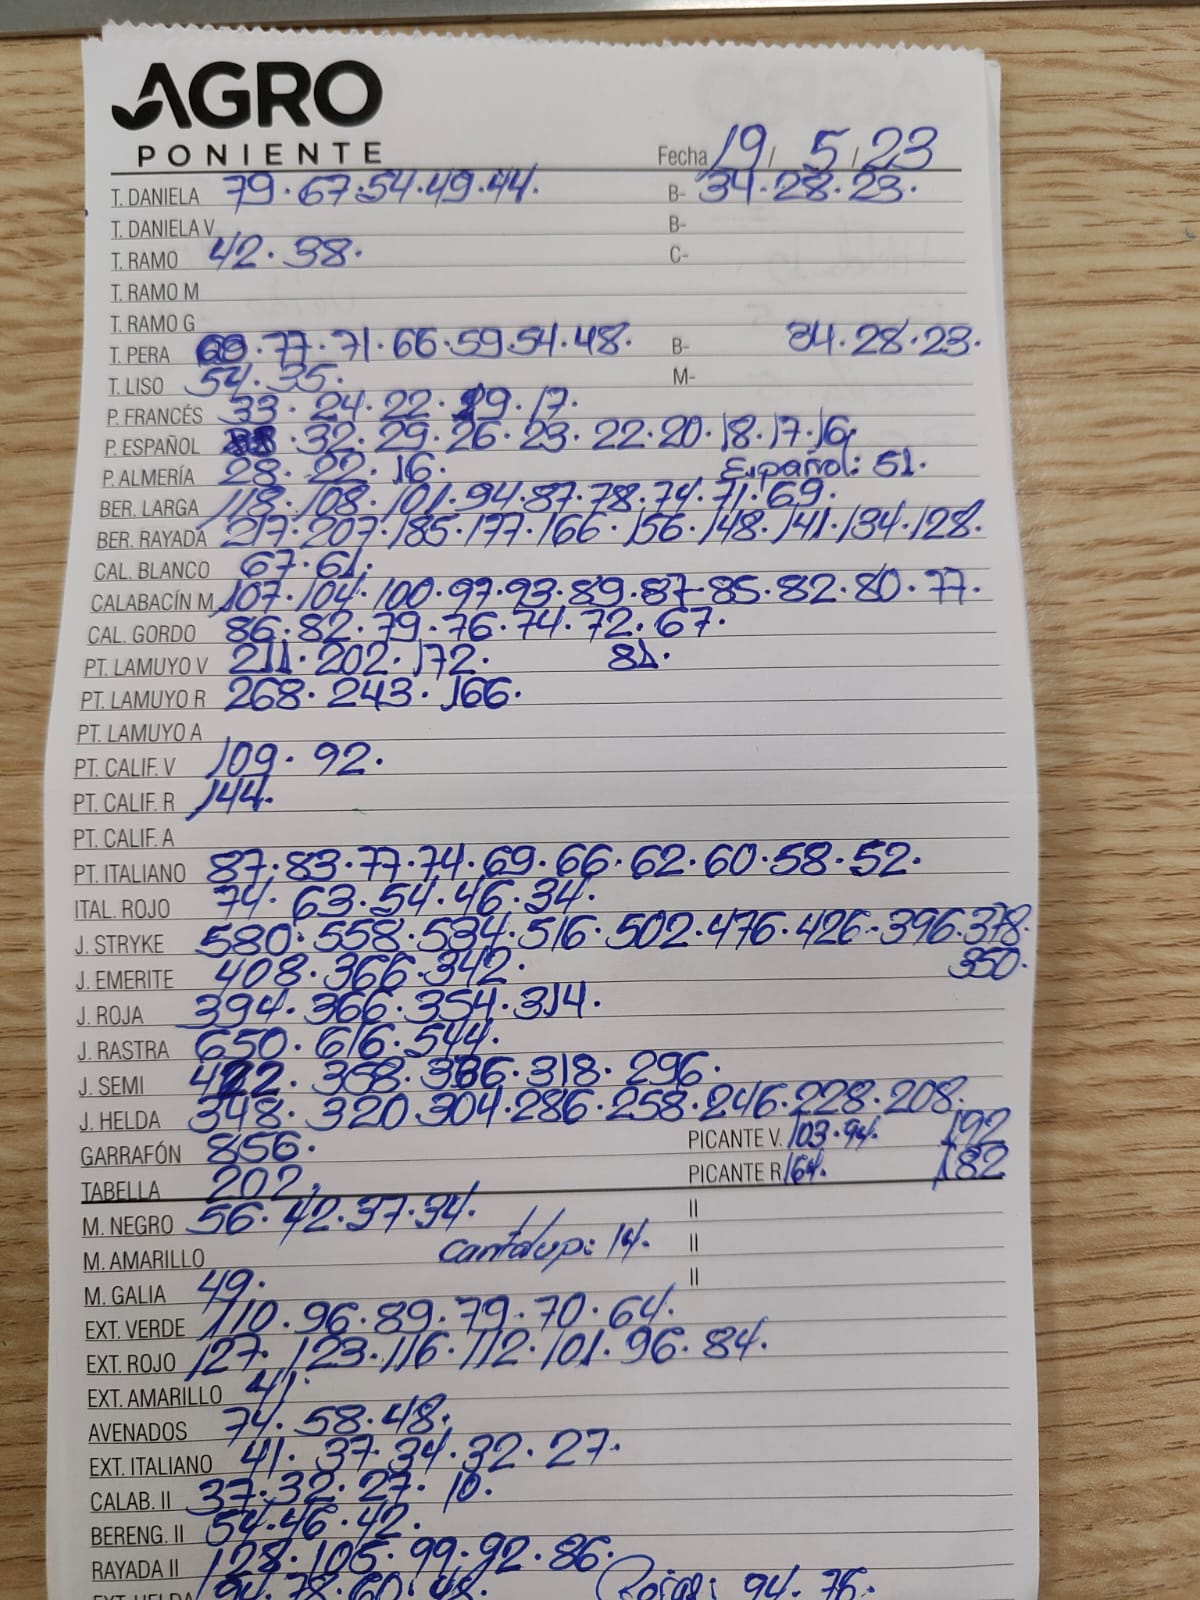 AGRO
PONIENTE
Fecha 19/5/23
T. DANIELA 79·67·54·49·44. B- 34·28·23.
T. DANIELA V B-
T. RAMO 42·38. C-
T. RAMO M
T. RAMO G
T. PERA 77·71·66·59·54·48. B- 34·28·23.
T. LISO 54·35. M-
P. FRANCÉS 33·24·22·19·17.
P. ESPAÑOL 32·29·26·23·22·20·18·17·16.
P. ALMERÍA 28·22·16. Español: 51.
BER. LARGA 118·108·101·94·87·78·74·71·69.
BER. RAYADA 217·207·185·177·166·156·148·141·134·128.
CAL. BLANCO 67·61.
CALABACÍN M 107·104·100·97·93·89·87·85·82·80·77.
CAL. GORDO 86·82·79·76·74·72·67.
PT. LAMUYO V 211·202·172. 81.
PT. LAMUYO R 268·243·166.
PT. LAMUYO A
PT. CALIF. V 109·92.
PT. CALIF. R 144.
PT. CALIF. A
PT. ITALIANO 87·83·77·74·69·66·62·60·58·52.
ITAL. ROJO 74·63·54·46·34.
J. STRYKE 580·558·534·516·502·476·426·396·378.
J. EMERITE 408·366·342. 350.
J. ROJA 394·366·354·314.
J. RASTRA 650·616·544.
J. SEMI 368·318·296.
J. HELDA 348·320·304·286·258·246·228·208.
GARRAFÓN 856. PICANTE V. 103·94. 192
TABELLA 202. PICANTE R 164. 182
M. NEGRO 56·42·37·34. II
M. AMARILLO Cantalup: 14. II
M. GALIA 49. II
EXT. VERDE 110·96·89·79·70·64.
EXT. ROJO 127·123·116·112·101·96·84.
EXT. AMARILLO 41.
AVENADOS 74·58·48.
EXT. ITALIANO 41·37·34·32·27.
CALAB. II 37·32·27·10.
BERENG. II 54·46·42.
RAYADA II 128·105·99·92·86.
EXT. HELDA 94·78·60·48. 94·76.